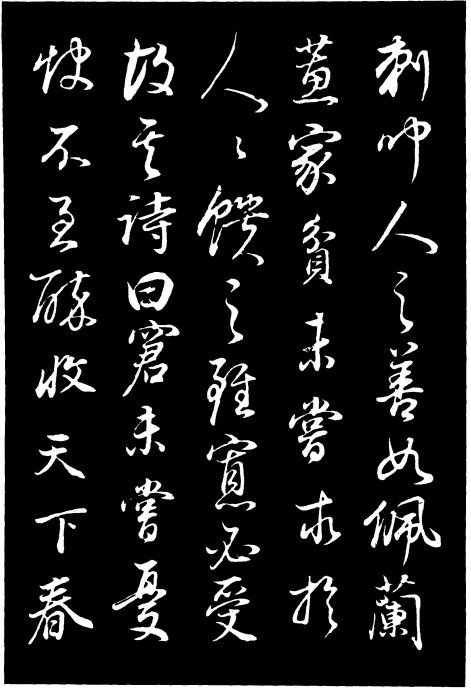 刺聞人之善如佩蘭
蕙家貧未嘗求於
人々饋之雖寡必受
故其詩曰窘未嘗憂
飲不至醉收天下春